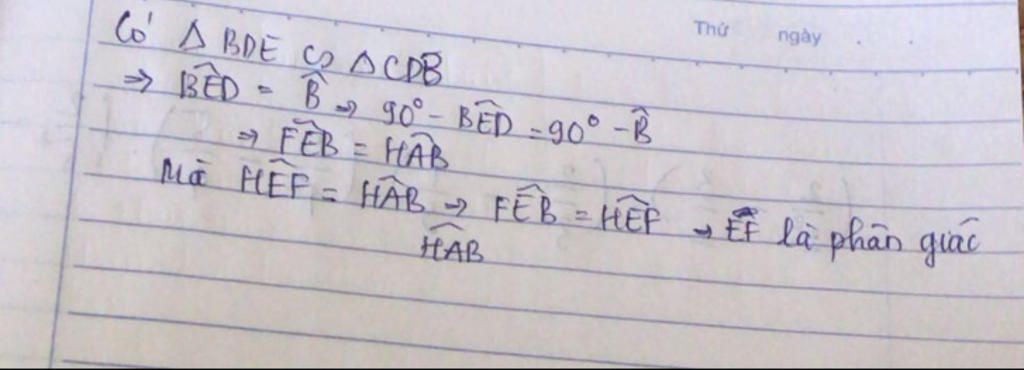 Thứ ngày
Có Δ BDE ∽ Δ CDB
⇒ B̂ED = B̂ → 90° - B̂ED = 90° - B̂
⇒ F̂EB = ĤAB
Mà ĤEF = ĤAB → F̂EB = ĤEF → EF là phân giác
ĤAB